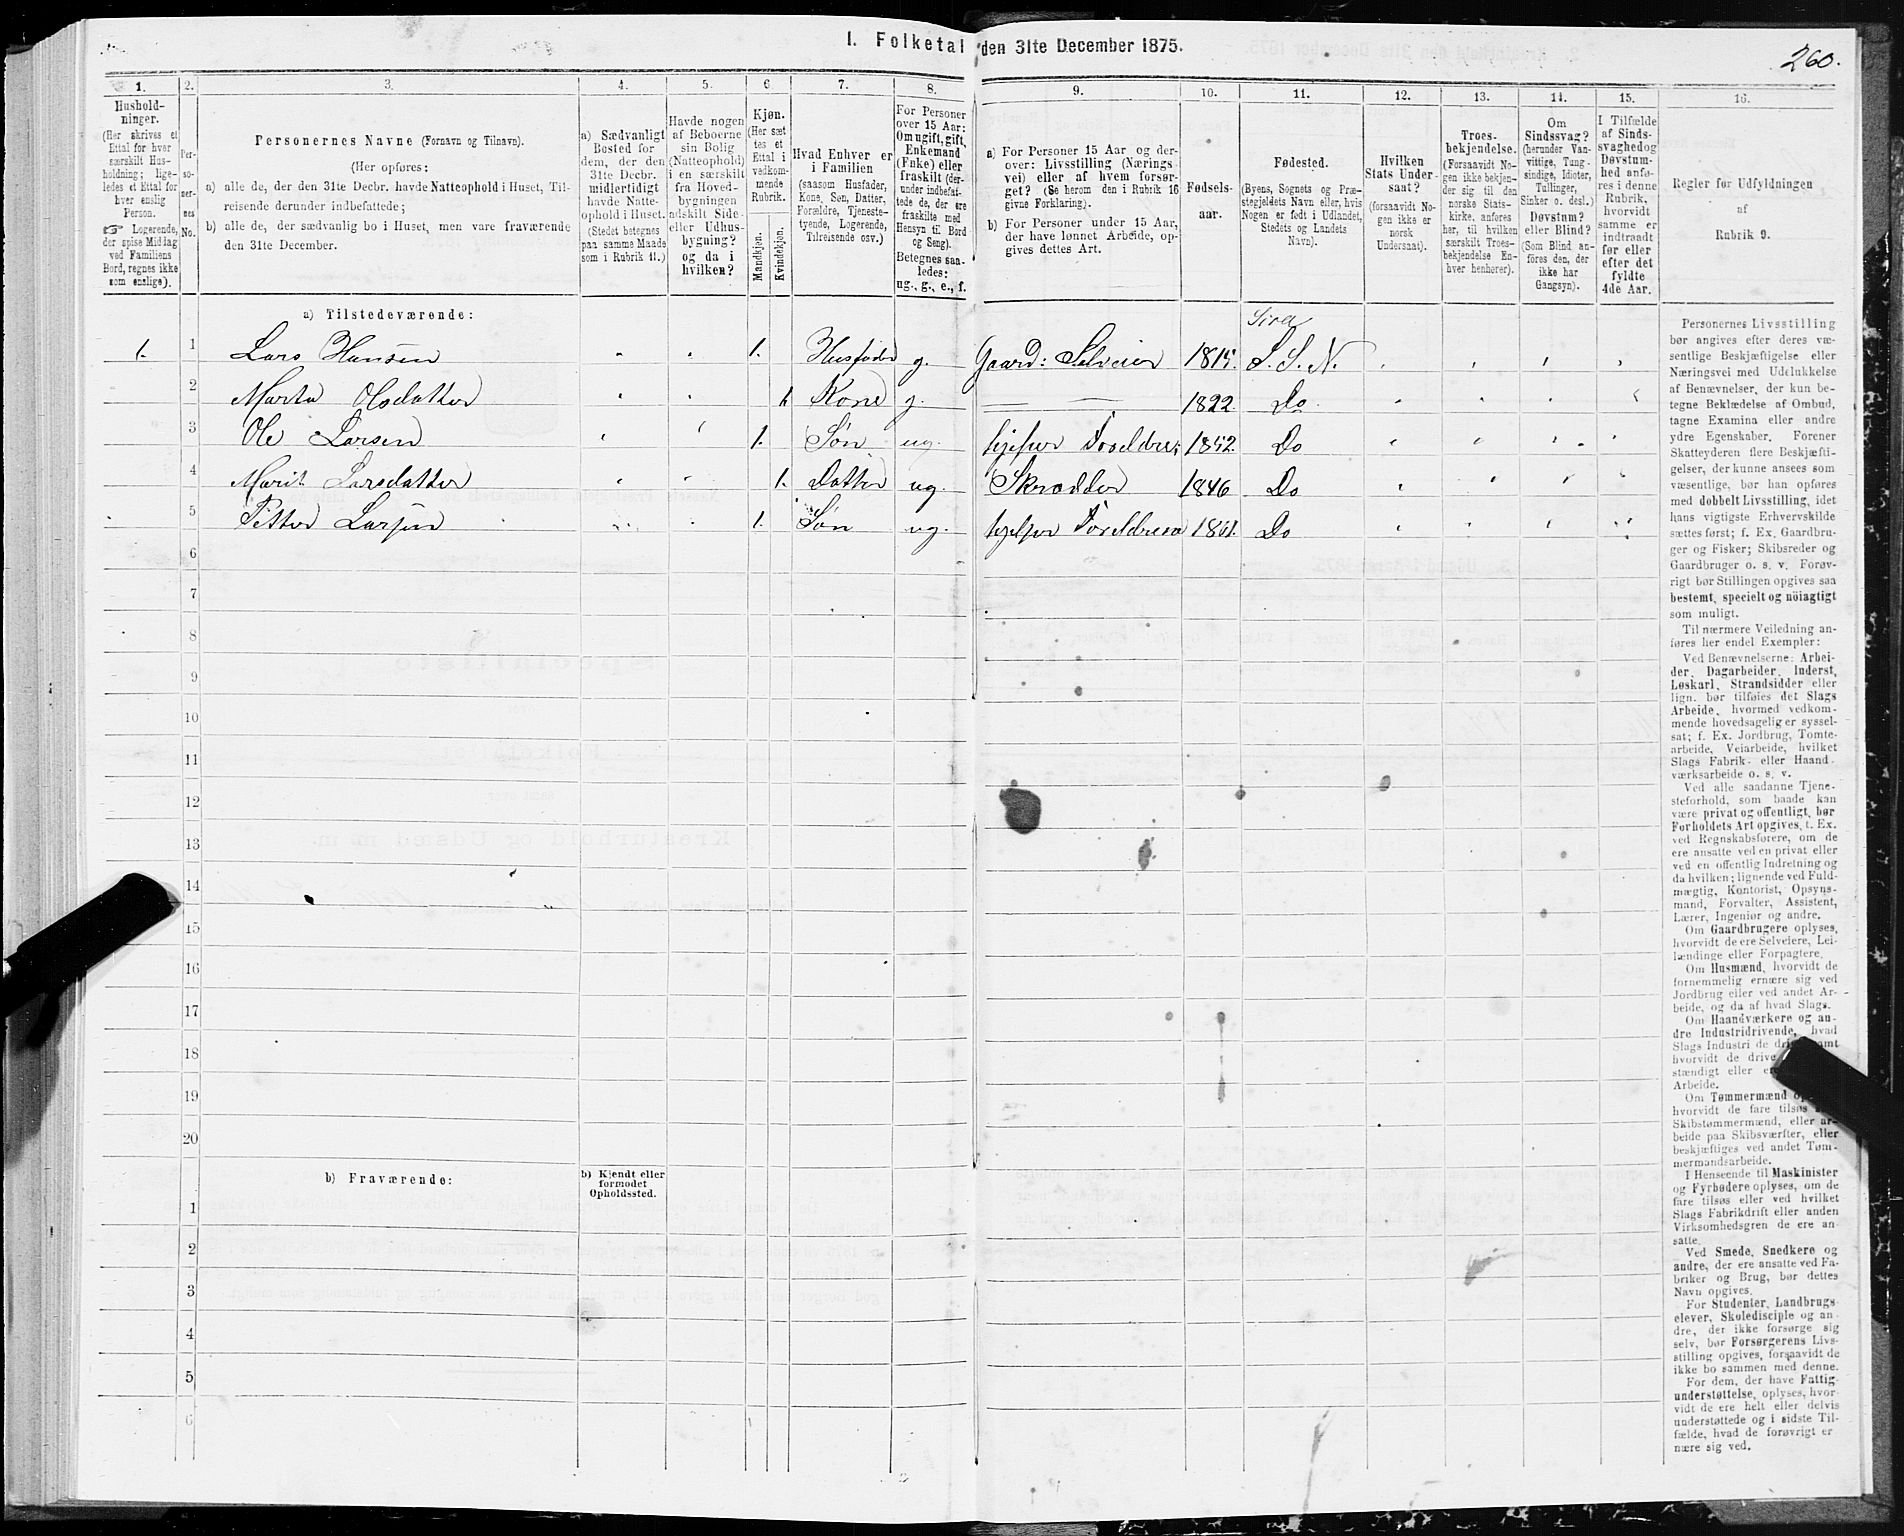 1. Folketal den 31te December 1875.
260.
1.
2.
3.
4.
5.
6.
7.
8.
9.
10.
11.
12.
13.
14.
15.
16.
Hushold-
ninger.
(Her skrives et
Ettal for hver
særskilt Hus-
holdning; lige-
ledes et Ettal for
hver enslig
Person.
☞ Logerende,
der spise Middag
ved Familiens
Bord, regnes ikke
som enslige).
Per-
so-
ner-
nes
No.
Personernes Navne (Fornavn og Tilnavn).
(Her opføres:
a) alle de, der den 31te Decbr. havde Natteophold i Huset, Til-
reisende derunder indbefattede;
b) alle de, der sædvanlig bo i Huset, men vare fraværende
den 31te December.
a) Sædvanligt
Bosted for
dem, der den
31te Decbr.
midlertidigt
havde Natte-
ophold i Huset.
(Stedet betegnes
paa samme Maade
som i Rubrik 11.)
Havde nogen
af Beboerne
sin Bolig
(Natteophold)
i en særskilt
fra Hoved-
bygningen
adskilt Side-
eller Udhus-
bygning?
og da i
hvilken?
Kjøn.
(Her sæt
tes et
Ettal i
vedkom-
mende
Rubrik.
Mandkjøn.
Kvindekjøn.
Hvad Enhver er
i Familien
(saasom Husfader,
Kone, Søn, Datter,
Forældre, Tjeneste-
tyende, Logerende,
Tilreisende osv.)
For Personer
over 15 Aar:
Om ugift, gift,
Enkemand
(Enke) eller
fraskilt (der-
under indbefat-
tede de, der ere
fraskilte med
Hensyn til Bord
og Seng).
Betegnes saa-
ledes:
ug., g., e., f.
a) For Personer 15 Aar og der-
over: Livsstilling (Nærings
vei) eller af hvem forsør-
get? (Se herom den i Rubrik 16
givne Forklaring).
b) For Personer under 15 Aar,
der have lønnet Arbeide, op-
gives dettes Art.
Fødsels-
aar.
Fødested.
(Byens, Sognets og Præ-
stegjeldets Navn eller, hvis
Nogen er født i Udlandet,
Stedets og Landets
Navn).
Hvilken
Stats Under-
saat?
(forsaavidt No-
gen ikke er
norsk
Undersaat).
Troes-
bekjendelse.
(Forsaavidt No-
gen ikke bekjen-
der sig til den
norske Stats-
kirke, anføres
her, til hvilken
særskilt Troes-
bekjendelse En-
hver henhører).
Om
Sindssvag?
(herunder Van-
vittige, Tung-
sindige, Idioter,
Tullinger,
Sinker o. desl.)
Døvstum?
eller Blind?
(Som Blind an-
føres den, der
ikke har
Gangsyn).
I Tilfælde
af Sinds-
svaghed og
Døvstum-
hed anfø-
res i denne
Rubrik,
hvorvidt
samme er
indtraadt
før eller
efter det
fyldte
4de Aar.
Regler før Udfyldningen
af
Rubrik 9.
a) Tilstedeværende:
Sira
1. 1 Lars Hansen 1. Husfader g. Gaard: Selveier 1815. S. S. N.
2 Marta Olsdatter 1 Kone g. — — 1822. Do
3 Ole Larsen 1. Søn ug. hjelper Foreldre 1852. Do
4 Marit Larsdatter 1. Datter ug. Skrædder 1846 Do
5 Petter Larsen 1. Søn ug. hjelper Foreldrene 1861. Do
6
7
8
9
10
11
12
13
14
15
16
17
18
19
20
b) Fraværende:
b) Kjendt eller
formodet
Opholdssted.
1
2
3
4
5
6
Personernes Livsstilling
bør angives efter deres væ-
sentlige Beskjæftigelse eller
Næringsvei med Udelukkelse
af Benævnelser, der kun be-
tegne Beklædelse af Ombud,
tagne Examina eller andre
ydre Egenskaber. Forener
Skatteyderen flere Beskjæfti-
gelser, der kunne ansees som
væsentlige, bør han opføres
med dobbelt Livsstilling, idet
hans vigtigste Erhvervskilde
sættes først; f. Ex. Gaardbru-
ger og Fisker; Skibsreder og
Gaardbruger o. s. v. Forøv-
rigt bør Stillingen opgives saa
bestemt, specielt og nöiagtigt
som muligt.
Til nærmere Veiledning an-
føres her endel Exempler:
Ved Benævnelserne: Arbei-
der, Dagarbeider, Inderst,
Løskarl, Strandsidder eller
lign. bør tilføies det Slags
Arbeide, hvormed vedkom-
mende hovedsagelig er syssel-
sat; f. Ex. Jordbrug, Tomte-
arbeide, Veiarbeide, hvilket
Slags Fabrik- eller Haand-
værksarbeide o. s. v.
Ved alle saadanne Tjene-
steforhold, som baade kan
være privat og offentligt, bør
Forholdets Art opgives, t. Ex.
ved Regnskabsførere, om de
ere ansatte ved en privat eller
ved en offentlig Indretning og
da hvilken; lignende ved Fuld-
mægtig, Kontorist, Opsyns-
mand, Forvalter, Assistent,
Lærer, Ingeniør og andre.
Om Gaardbrugere oplyses,
hvorvidt de ere Selveiere, Lei-
lændinge eller Forpagtere.
Om Husmænd, hvorvidt de
fornemmelig ernære sig ved
Jordbrug eller ved andet Ar-
beide, og da af hvad Slags.
Om Haandværkere og an-
dre Industridrivende, hvad
Slags Industri de
hvorvidt de drive
stændigt eller
Arbeide.
Om Tømmermænd
hvorvidt de fare tilsøs
Skibstømmermænd, eller ar-
beide paa Skibsværfter, eller
beskjæftiges ved andet Tøm-
mermandsarbeide.
I Henseende til Maskinister
og Fyrbødere oplyses, om de
fare tilsøs eller ved hvilket
Slags Fabrikdrift eller anden
Virksomhedsgren de ere an-
satte.
Ved Smede, Snedkere og
andre, der ere ansatte ved Fa-
briker og Brug, bør dettes
Navn opgives.
For Studenter, Landbrugs-
elever, Skoledisciple og an-
dre, der ikke forsørge sig
selv, bør Forsørgerens Livs-
stilling opgives, forsaavidt de
ikke bo sammen med denne.
For dem, der have Fattig-
understøttelse, oplyses, hvor-
vidt de ere helt eller delvis
understøttede og i sidste Til-
fælde, hvad de forøvrigt er
nære sig ved.